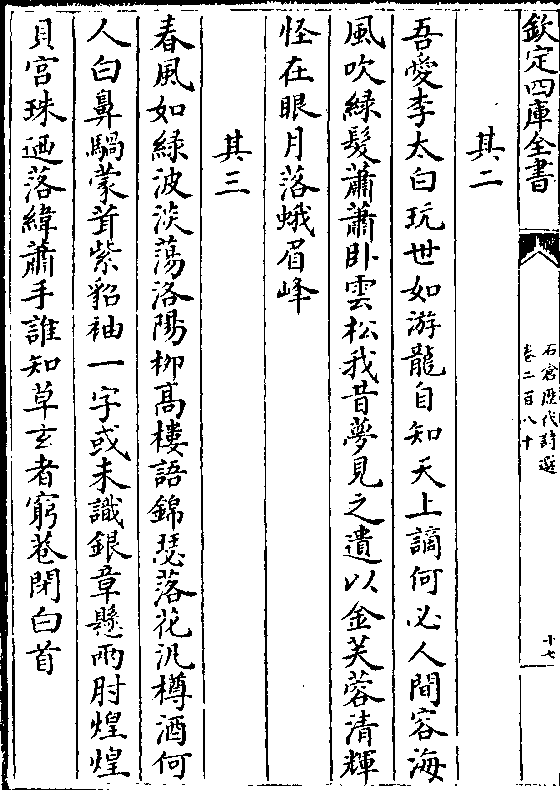 欽定四庫全書
石倉歷代詩選
卷二百八十
十七
其二
吾愛李太白玩世如游龍自知天上謫何必人間容海
風吹綠髮蕭蕭卧雲松我昔夢見之遺以金芙蓉清輝
怪在眼月落蛾眉峰
其三
春風如綠波淡蕩洛陽柳髙樓語錦瑟落花汎樽酒何
人白鼻騧蒙茸紫貂袖一字或未識銀章懸兩肘煌煌
貝宫珠迺落緯蕭手誰知草玄者窮巷閉白首